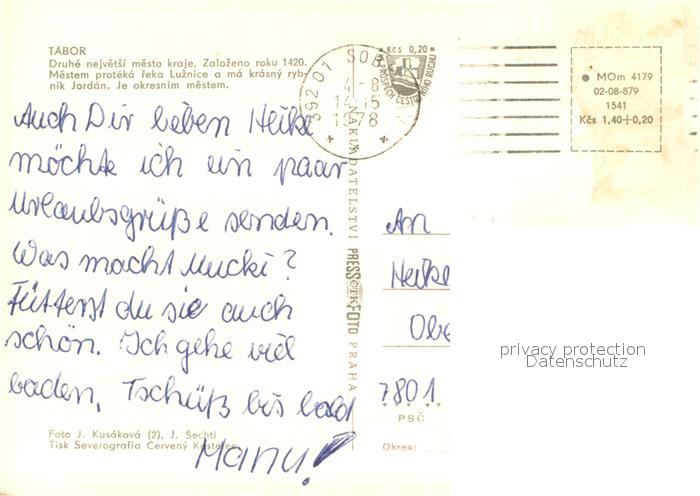 TÁBOR
Druhé největší město kraje. Založeno roku 1420.
Městem protéká řeka Lužnice a má krásný ryb-
ník Jordán. Je okresním městem.
Auch Dir lieben Heike
möchte ich ein paar
Urlaubsgrüße senden.
Was macht Mucki?
Fütterst du sie auch
schön. Ich gehe viel
baden. Tschüß bis bald
Manu!
Foto J. Kusáková (2), J. Šechtl
Tisk Severografia Červený Kostelec
NAKLADATELSTVÍ PRESSFOTO PRAHA
ČTK
392 01 SOB
4.-8
14-15
1978
Kčs 0,20
CESTOVNÍHO RUCHU
MOm 4179
02-08-879
1541
Kčs 1,40+0,20
An
Heike
Obe
7801
PSČ
Okres:
privacy protection
Datenschutz